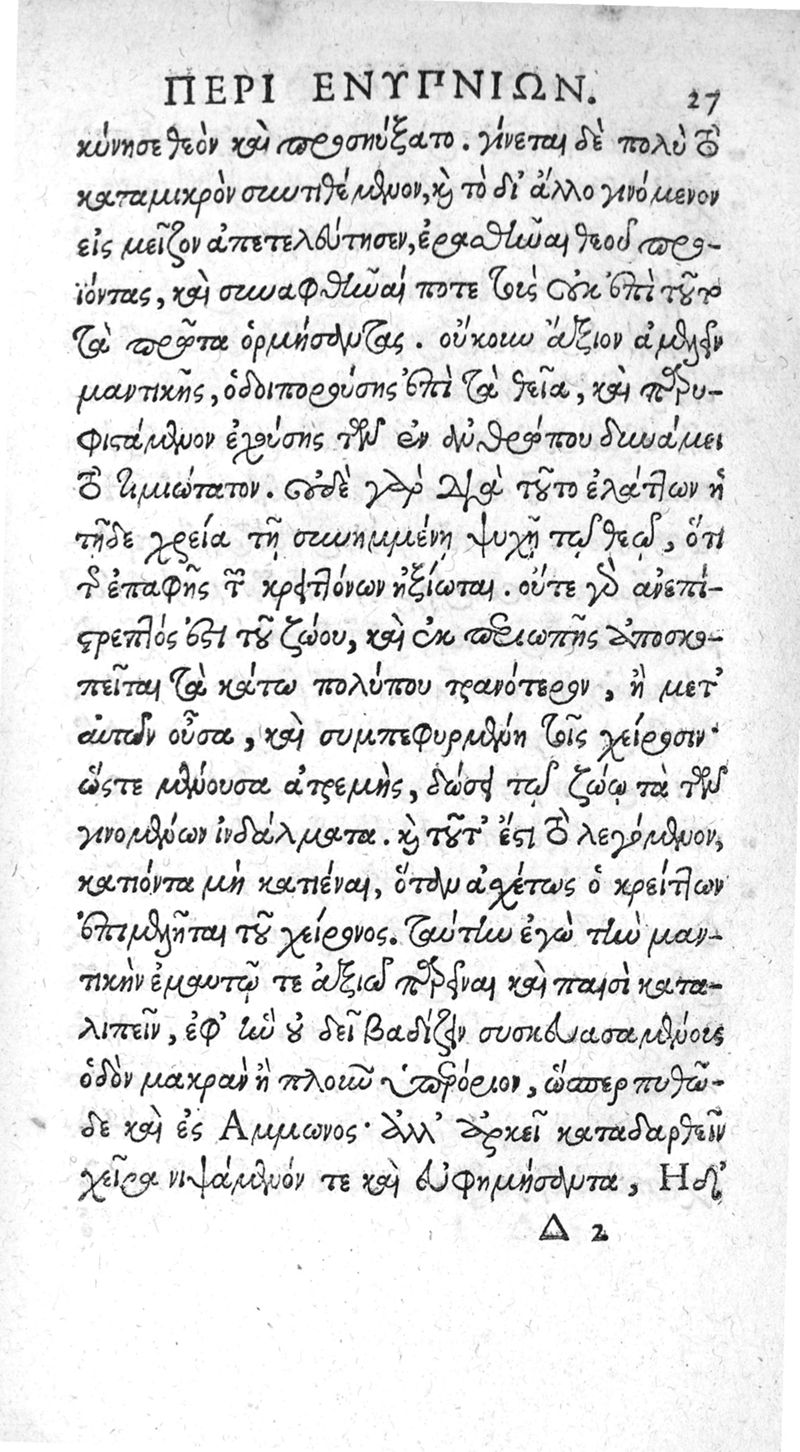 ΠΕΡΙ ΕΝΥΠΝΙΩΝ. 27
κύνησε θεὸν καὶ προσηύξατο. γίνεται δὲ πολὺ τὸ
καταμικρὸν συντιθέμενον, καὶ τὸ δι' ἄλλο γινόμενον
εἰς μεῖζον ἀπετελεύτησεν, ἐραθῆναι θεοῦ προ-
ϊόντας, καὶ συναφθῆναί ποτε τοὺς οὐκ ἐπὶ τοῦτο
τὰ πρῶτα ὁρμήσαντας. οὔκουν ἄξιον ἀμελεῖν
μαντικῆς, ὁδοιπορούσης ἐπὶ τὰ θεῖα, καὶ παρυ-
φιστάμενον ἐχούσης τῶν ἐν ἀνθρώπου δυνάμει
τὸ τιμιώτατον. οὐδὲ γὰρ διὰ τοῦτο ἐλάττων ἡ
τῇδε χρεία τῇ συνημμένῃ ψυχῇ τῷ θεῷ, ὅτι
τῆς ἐπαφῆς τῆς κρειττόνων ἠξίωται. οὔτε γὰρ ἀνεπί-
στρεπτός ἐστι τοῦ ζώου, καὶ ἐκ περιωπῆς ἀποσκο-
πεῖται τὰ κάτω πολύπου τρανότερον, ἢ μετ'
αὐτῶν οὖσα, καὶ συμπεφυρμένη τοῖς χείροσιν·
ὥστε μένουσα ἀτρεμὴς, δώσει τῷ ζώῳ τὰ τῶν
γινομένων ἰνδάλματα. καὶ τοῦτ' ἔστι τὸ λεγόμενον,
κατιόντα μὴ κατιέναι, ὅταν ἀσχέτως ὁ κρείττων
ἐπιμελῆται τοῦ χείρονος. ταύτην ἐγὼ τὴν μαν-
τικὴν ἐμαυτῷ τε ἀξιῶ παρεῖναι καὶ παισὶ κατα-
λιπεῖν, ἐφ' ἣν οὐ δεῖ βαδίζειν συσκευασαμένους
ὁδὸν μακρὰν ἢ πλοῦν ὑπερόριον, ὥσπερ πυθῶ-
δε καὶ ἐς Αμμωνος· ἀλλ' ἀρκεῖ καταδαρθεῖν
χεῖρα νιψάμενόν τε καὶ εὐφημήσαντα, Η δ'
Δ 2